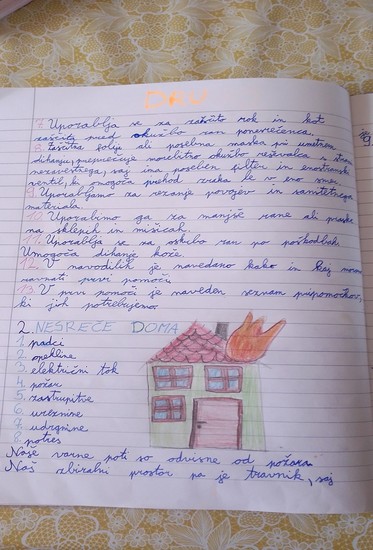 DRU
7. Uporablja se za zaščito rok in kot
zaščita pred okužbo ran ponesrečenca.
8. Zaščitna folija ali posebna maska pri umetnem
dihanju, preprečuje morebitno okužbo reševalca s strani
nezavestnega, saj ima poseben filter in enostranski
ventil, ki omogoča prehod zraka le v eno smer.
9. Uporabljamo za rezanje povojev in sanitetnega
materiala.
10. Uporabimo ga za manjše rane ali praske
na sklepih in mišicah.
11. Uporablja se za oskrbo ran po poškodbah.
Omogoča dihanje kože.
12. V navodilih je navedeno kako in kaj mora
ravnati prvi pomoči.
13. V prvi pomoči je naveden seznam pripomočkov,
ki jih potrebujemo.
2. NESREČE DOMA
1. padci
2. opekline
3. električni tok
4. požar
5. zastrupitve
6. ureznine
7. udrgnine
8. potres
Naše varne poti so odvisne od požara.
Naš zbiralni prostor pa je travnik, saj